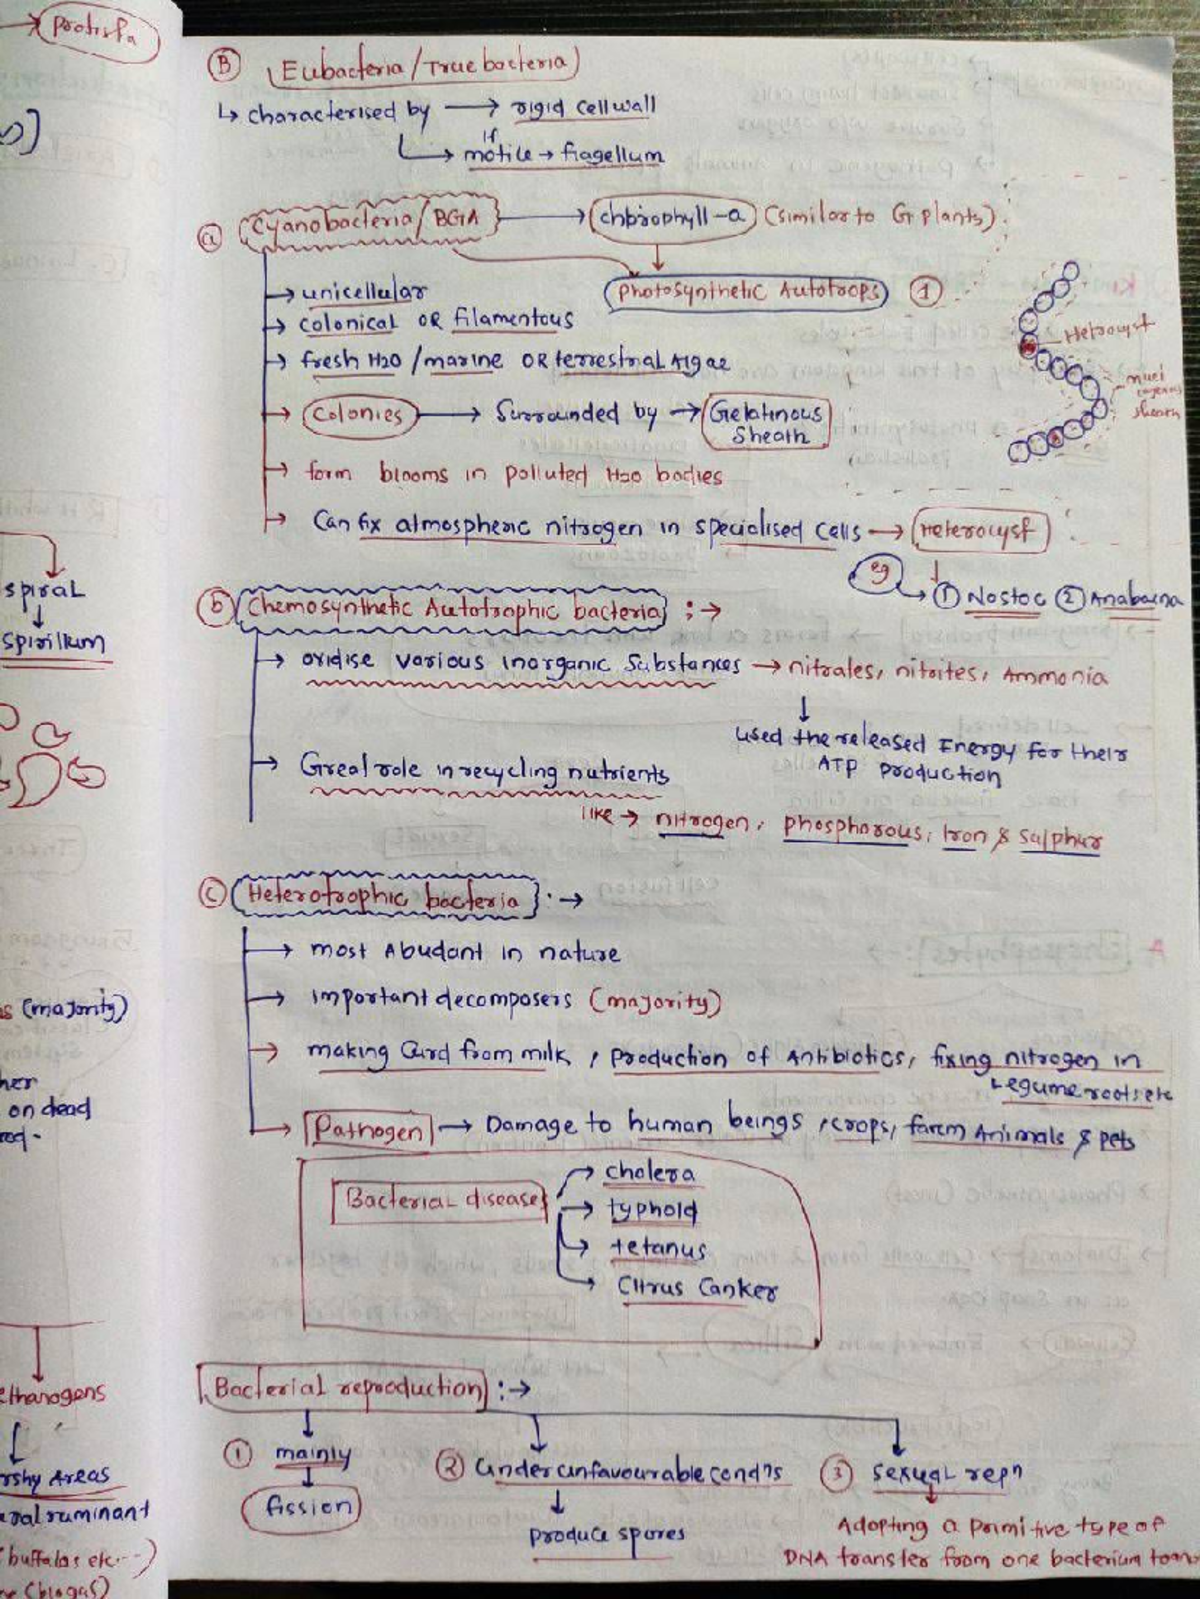 Protista
spiral
spirillum
s (majority)
her
on dead
ethanogens
rshy Areas
eral ruminant
buffalos etc---)
(biogas)
(B) Eubacteria/True bacteria
↳ characterised by → rigid cellwall
if
→ motile → flagellum
(a) Cyanobacteria/BGA → chlorophyll-a (similar to G plants).
→ unicellular
Photosynthetic Autotrops (1)
→ colonical OR filamentous
→ fresh H2O /marine OR terrestrial Algae
Hetrocyst
→ Colonies → Surrounded by → Gelatinous
Sheath
sheath
→ form blooms in polluted H2O bodies
→ Can fix atmospheric nitrogen in specialised cells → Heterocyst
eg → (1) Nostoc (2) Anabaena
(b) Chemosynthetic Autotrophic bacteria :→
→ oxidise various inorganic substances → nitrates, nitrites, Ammonia
↓
used the released Energy for their
ATP production
→ Great role in recycling nutrients
like → nitrogen, phosphorous, Iron & sulphur
(C) Heterotrophic bacteria :→
→ most Abudant in nature
→ important decomposers (majority)
→ making Curd from milk, production of Antibiotics, fixing nitrogen in
Legume roots etc
→ Pathogen → Damage to human beings, crops, farm Animals & pets
Bacterial disease → cholera
→ typhoid
→ tetanus
→ Citrus Canker
Bacterial reproduction :→
(1) mainly
fission
(2) Under unfavourable condns
↓
produce spores
(3) sexual repn
Adopting a primitive type of
DNA transfer from one bacterium to